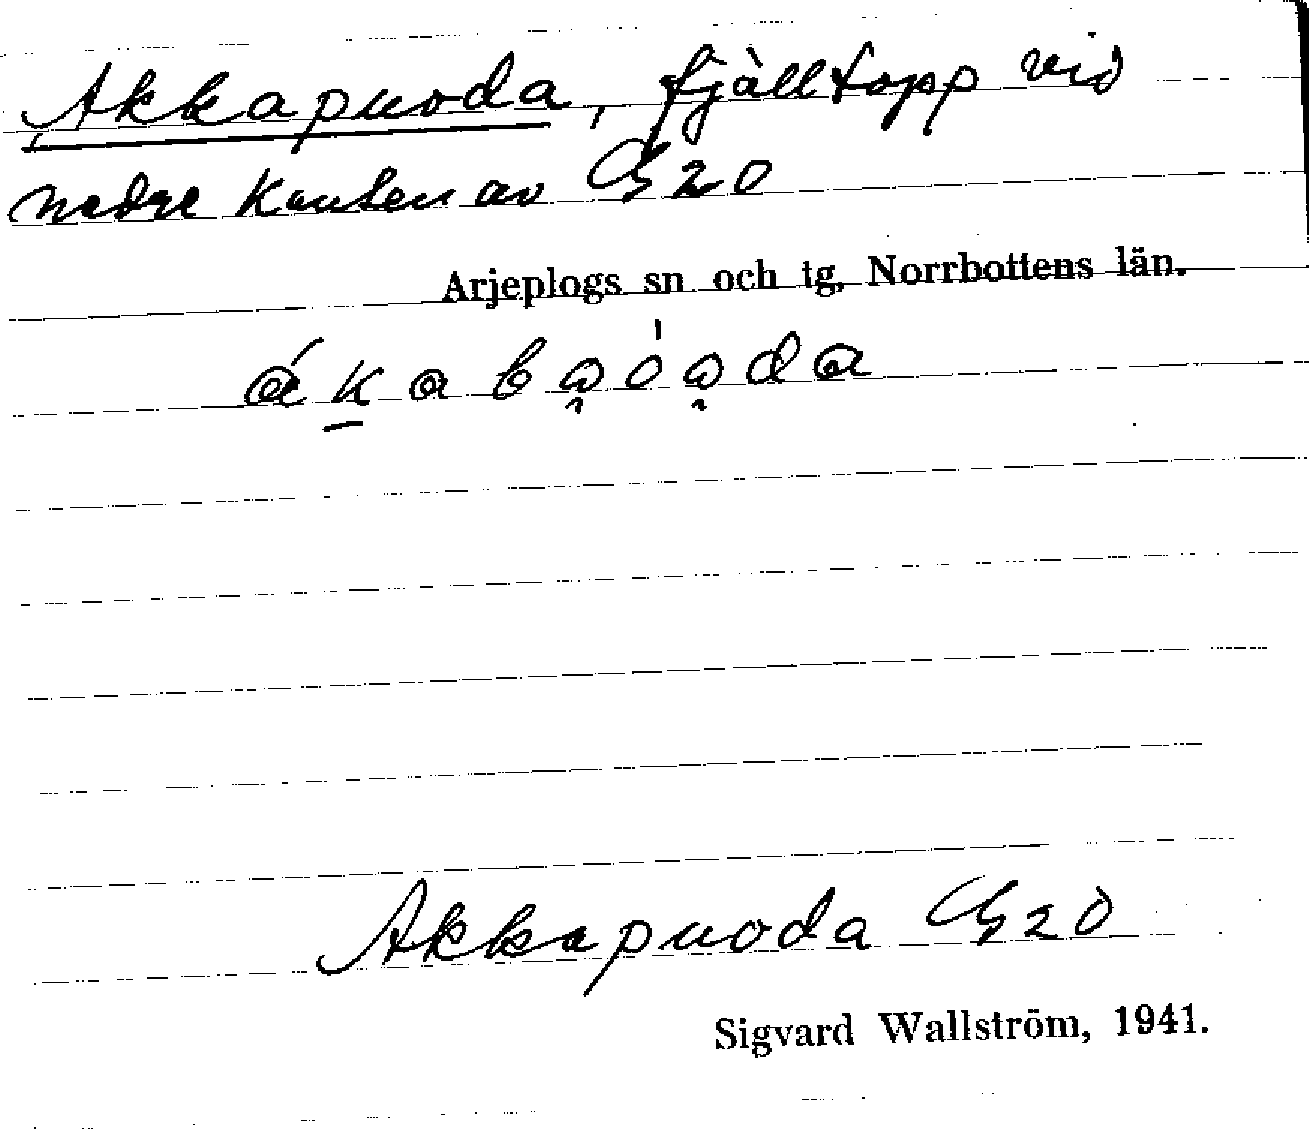 Akkapuoda, fjälltopp vid
nedre kanten av G20
Arjeplogs sn och tg, Norrbottens län.
áḵabo̯óo̯da
Akkapuoda G20
Sigvard Wallström, 1941.